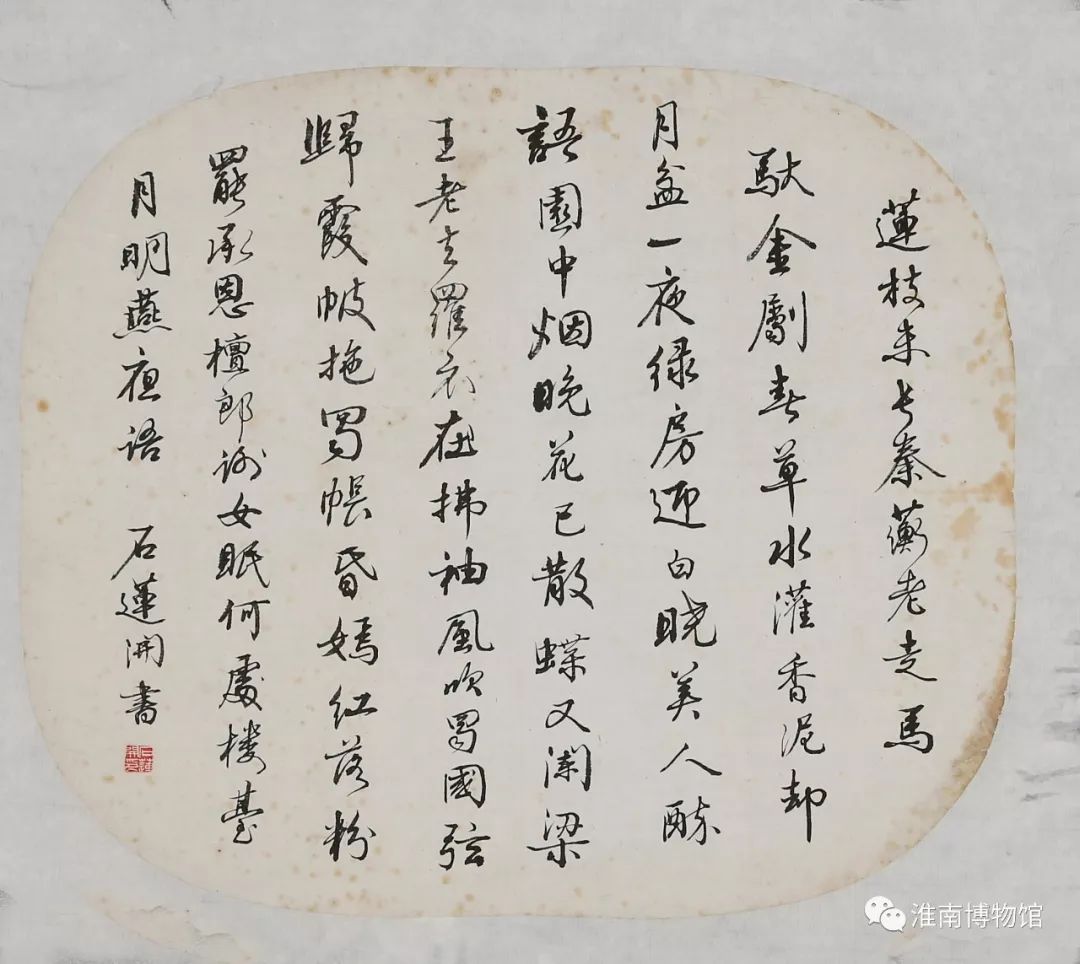 蓮枝未长秦蘅老走馬
馱金劚春草水灌香泥却
月盆一夜绿房迎白晓美人醉
語園中烟晚花已散蝶又闌梁
王老去羅衣在拂袖風吹蜀國弦
歸霞帔拖蜀帳昏嫣红落粉
罷承恩檀郎谢女眠何處楼臺
月明燕夜语 石蓮開書
淮南博物馆